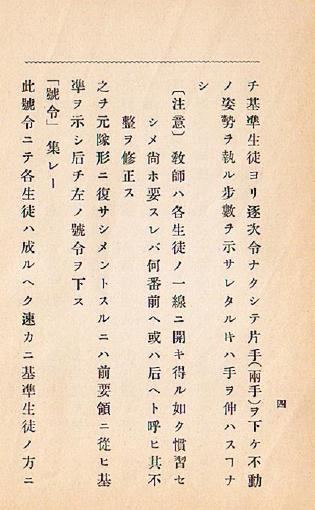 四
チ基準生徒ヨリ逐次令ナクシテ片手(兩手)ヲ下ケ不動
ノ姿勢ヲ執ル步數ヲ示サレタル𪜈ハ手ヲ伸ハスヿナ
シ
〔注意〕敎師ハ各生徒ノ一線ニ開キ得ル如ク慣習セ
シメ尙ホ要スレバ何番前ヘ或ハ后ヘト呼ヒ其不
整ヲ修正ス
之ヲ元隊形ニ復サシメントスルニハ前要領ニ從ヒ基
準ヲ示シ后チ左ノ號令ヲ下ス
「號令」集レー
此號令ニテ各生徒ハ成ルヘク速カニ基準生徒ノ方ニ